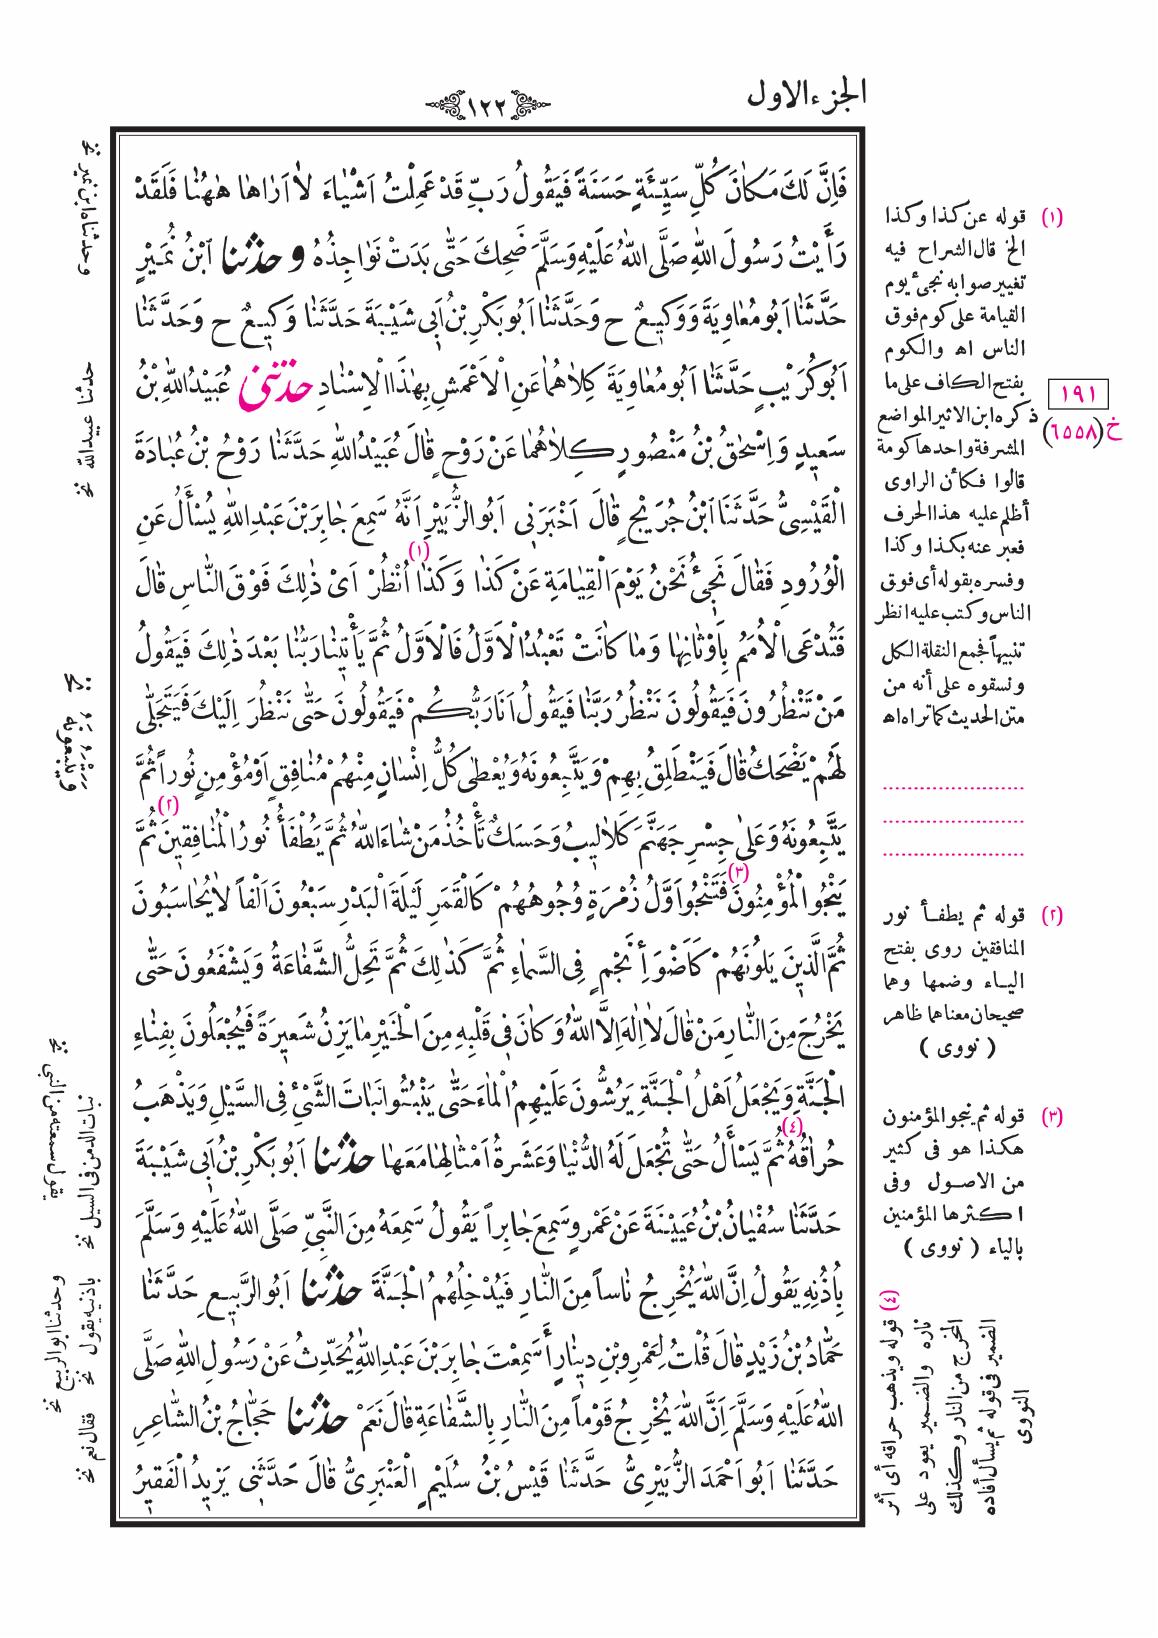 الجزء الاول
١٢٢
فَاِنَّ لَكَ مَكَانَ كُلِّ سَيِّئَةٍ حَسَنَةً فَيَقُولُ رَبِّ قَدْ عَمِلْتُ اَشْيَاءَ لَا اَرَاهَا هٰهُنَا فَلَقَدْ
رَأَيْتُ رَسُولَ اللّٰهِ صَلَّى اللّٰهُ عَلَيْهِ وَسَلَّمَ ضَحِكَ حَتّٰى بَدَتْ نَوَاجِذُهُ و حدثنا ابْنُ نُمَيْرٍ
حَدَّثَنَا اَبُو مُعَاوِيَةَ وَوَكِيعٌ ح وَحَدَّثَنَا اَبُو بَكْرِ بْنُ اَبِي شَيْبَةَ حَدَّثَنَا وَكِيعٌ ح وَحَدَّثَنَا
اَبُو كُرَيْبٍ حَدَّثَنَا اَبُو مُعَاوِيَةَ كِلَاهُمَا عَنِ الْاَعْمَشِ بِهٰذَا الْاِسْنَادِ حدثنى عُبَيْدُ اللّٰهِ بْنُ
سَعِيدٍ وَاِسْحٰقُ بْنُ مَنْصُورٍ كِلَاهُمَا عَنْ رَوْحٍ قَالَ عُبَيْدُ اللّٰهِ حَدَّثَنَا رَوْحُ بْنُ عُبَادَةَ
الْقَيْسِيُّ حَدَّثَنَا ابْنُ جُرَيْجٍ قَالَ اَخْبَرَنِي اَبُو الزُّبَيْرِ اَنَّهُ سَمِعَ جَابِرَ بْنَ عَبْدِ اللّٰهِ يُسْأَلُ عَنِ
الْوُرُودِ فَقَالَ نَجِيءُ نَحْنُ يَوْمَ الْقِيَامَةِ عَنْ كَذَا وَكَذَا (١) اُنْظُرْ اَىْ ذٰلِكَ فَوْقَ النَّاسِ قَالَ
فَتُدْعَى الْاُمَمُ بِاَوْثَانِهَا وَمَا كَانَتْ تَعْبُدُ الْاَوَّلُ فَالْاَوَّلُ ثُمَّ يَأْتِينَا رَبُّنَا بَعْدَ ذٰلِكَ فَيَقُولُ
مَنْ تَنْظُرُونَ فَيَقُولُونَ نَنْظُرُ رَبَّنَا فَيَقُولُ اَنَا رَبُّكُمْ فَيَقُولُونَ حَتّٰى نَنْظُرَ اِلَيْكَ فَيَتَجَلّٰى
لَهُمْ يَضْحَكُ قَالَ فَيَنْطَلِقُ بِهِمْ وَيَتَّبِعُونَهُ وَيُعْطٰى كُلُّ اِنْسَانٍ مِنْهُمْ مُنَافِقٍ اَوْ مُؤْمِنٍ نُوراً ثُمَّ
يَتَّبِعُونَهُ وَعَلٰى جِسْرِ جَهَنَّمَ كَلَالِيبُ وَحَسَكٌ تَأْخُذُ مَنْ شَاءَ اللّٰهُ ثُمَّ يَطْفَأُ نُورُ الْمُنَافِقِينَ (٢) ثُمَّ
يَنْجُو الْمُؤْمِنُونَ (٣) فَتَنْجُو اَوَّلُ زُمْرَةٍ وُجُوهُهُمْ كَالْقَمَرِ لَيْلَةَ الْبَدْرِ سَبْعُونَ اَلْفاً لَا يُحَاسَبُونَ
ثُمَّ الَّذِينَ يَلُونَهُمْ كَاَضْوَأِ نَجْمٍ فِى السَّمَاءِ ثُمَّ كَذٰلِكَ ثُمَّ تَحِلُّ الشَّفَاعَةُ وَيَشْفَعُونَ حَتّٰى
يَخْرُجَ مِنَ النَّارِ مَنْ قَالَ لَا اِلٰهَ اِلَّا اللّٰهُ وَكَانَ فِي قَلْبِهِ مِنَ الْخَيْرِ مَا يَزِنُ شَعِيرَةً فَيُجْعَلُونَ بِفِنَاءِ
الْجَنَّةِ وَيَجْعَلُ اَهْلُ الْجَنَّةِ يَرُشُّونَ عَلَيْهِمُ الْمَاءَ حَتّٰى يَنْبُتُوا نَبَاتَ الشَّيْءِ فِى السَّيْلِ وَيَذْهَبُ
حُرَاقُهُ (٤) ثُمَّ يَسْأَلُ حَتّٰى تُجْعَلَ لَهُ الدُّنْيَا وَعَشَرَةُ اَمْثَالِهَا مَعَهَا حدثنا اَبُو بَكْرِ بْنُ اَبِي شَيْبَةَ
حَدَّثَنَا سُفْيَانُ بْنُ عُيَيْنَةَ عَنْ عَمْرٍو سَمِعَ جَابِراً يَقُولُ سَمِعَهُ مِنَ النَّبِيِّ صَلَّى اللّٰهُ عَلَيْهِ وَسَلَّمَ
بِاُذُنِهِ يَقُولُ اِنَّ اللّٰهَ يُخْرِجُ نَاساً مِنَ النَّارِ فَيُدْخِلُهُمُ الْجَنَّةَ حدثنا اَبُو الرَّبِيعِ حَدَّثَنَا
حَمَّادُ بْنُ زَيْدٍ قَالَ قُلْتُ لِعَمْرِو بْنِ دِينَارٍ أَسَمِعْتَ جَابِرَ بْنَ عَبْدِ اللّٰهِ يُحَدِّثُ عَنْ رَسُولِ اللّٰهِ صَلَّى
اللّٰهُ عَلَيْهِ وَسَلَّمَ اِنَّ اللّٰهَ يُخْرِجُ قَوْماً مِنَ النَّارِ بِالشَّفَاعَةِ قَالَ نَعَمْ حدثنا حَجَّاجُ بْنُ الشَّاعِرِ
حَدَّثَنَا اَبُو اَحْمَدَ الزُّبَيْرِىُّ حَدَّثَنَا قَيْسُ بْنُ سُلَيْمٍ الْعَنْبَرِىُّ قَالَ حَدَّثَنِى يَزِيدُ الْفَقِيرُ
(١) قوله عن كذا وكذا
الخ قال الشراح فيه
تغيير صوابه نجىء يوم
القيامة على كوم فوق
الناس اه والكوم
بفتح الكاف على ما
ذكره ابن الاثير المواضع
المشرفة واحدها كومة
قالوا فكأن الراوى
أظلم عليه هذا الحرف
فعبر عنه بكذا وكذا
وفسره بقوله أى فوق
الناس وكتب عليه انظر
تنبيهاً فجمع النقلة الكل
ونسقوه على أنه من
متن الحديث كما تراه اه
١٩١
خ (٦٥٥٨)
(٢) قوله ثم يطفأ نور
المنافقين روى بفتح
الياء وضمها وهما
صحيحان معناهما ظاهر
( نووى )
(٣) قوله ثم ينجو المؤمنون
هكذا هو فى كثير
من الاصول وفى
اكثرها المؤمنين
بالياء ( نووى )
(٤) قوله ويذهب حراقه أى أثر
ناره والضمير يعود على
المخرج من النار وكذلك
الضمير فى قوله ثم يسأل أفاده
النووى
وحدثناه ابن نمير نخ
حدثنا عبيد الله نخ
نبات الدمن فى السيل نخ
يقول سمعته من النبى نخ
باذنيه يقول نخ
وحدثنا ابو الربيع نخ
فقال نعم نخ